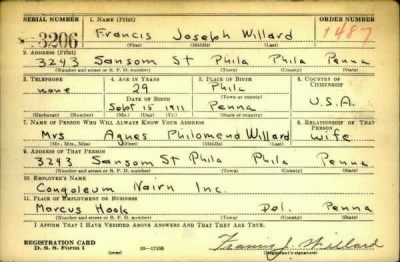 SERIAL NUMBER 1. NAME (Print) ORDER NUMBER
3206 Francis Joseph Willard 1487
(First) (Middle) (Last)
2. ADDRESS (Print)
3243 Sansom St Phila Phila Penna
(Number and street or R. F. D. number) (Town) (County) (State)
3. TELEPHONE 4. AGE IN YEARS 5. PLACE OF BIRTH 6. COUNTRY OF CITIZENSHIP
none 29 Phila
(Town or county)
DATE OF BIRTH
Sept 15 1911 Penna U.S.A.
(Exchange) (Number) (Mo.) (Day) (Yr.) (State or country)
7. NAME OF PERSON WHO WILL ALWAYS KNOW YOUR ADDRESS 8. RELATIONSHIP OF THAT PERSON
Mrs Agnes Philomena Willard wife
(Mr., Mrs., Miss) (First) (Middle) (Last)
9. ADDRESS OF THAT PERSON
3243 Sansom St Phila Phila Penna
(Number and street or R. F. D. number) (Town) (County) (State)
10. EMPLOYER'S NAME
Congoleum Nairn Inc.
11. PLACE OF EMPLOYMENT OR BUSINESS
Marcus Hook Del. Penna
(Number and street or R. F. D. number) (Town) (County) (State)
I AFFIRM THAT I HAVE VERIFIED ABOVE ANSWERS AND THAT THEY ARE TRUE.
REGISTRATION CARD
D. S. S. Form 1 16—17105 Francis J. Willard
(over) (Registrant's signature)